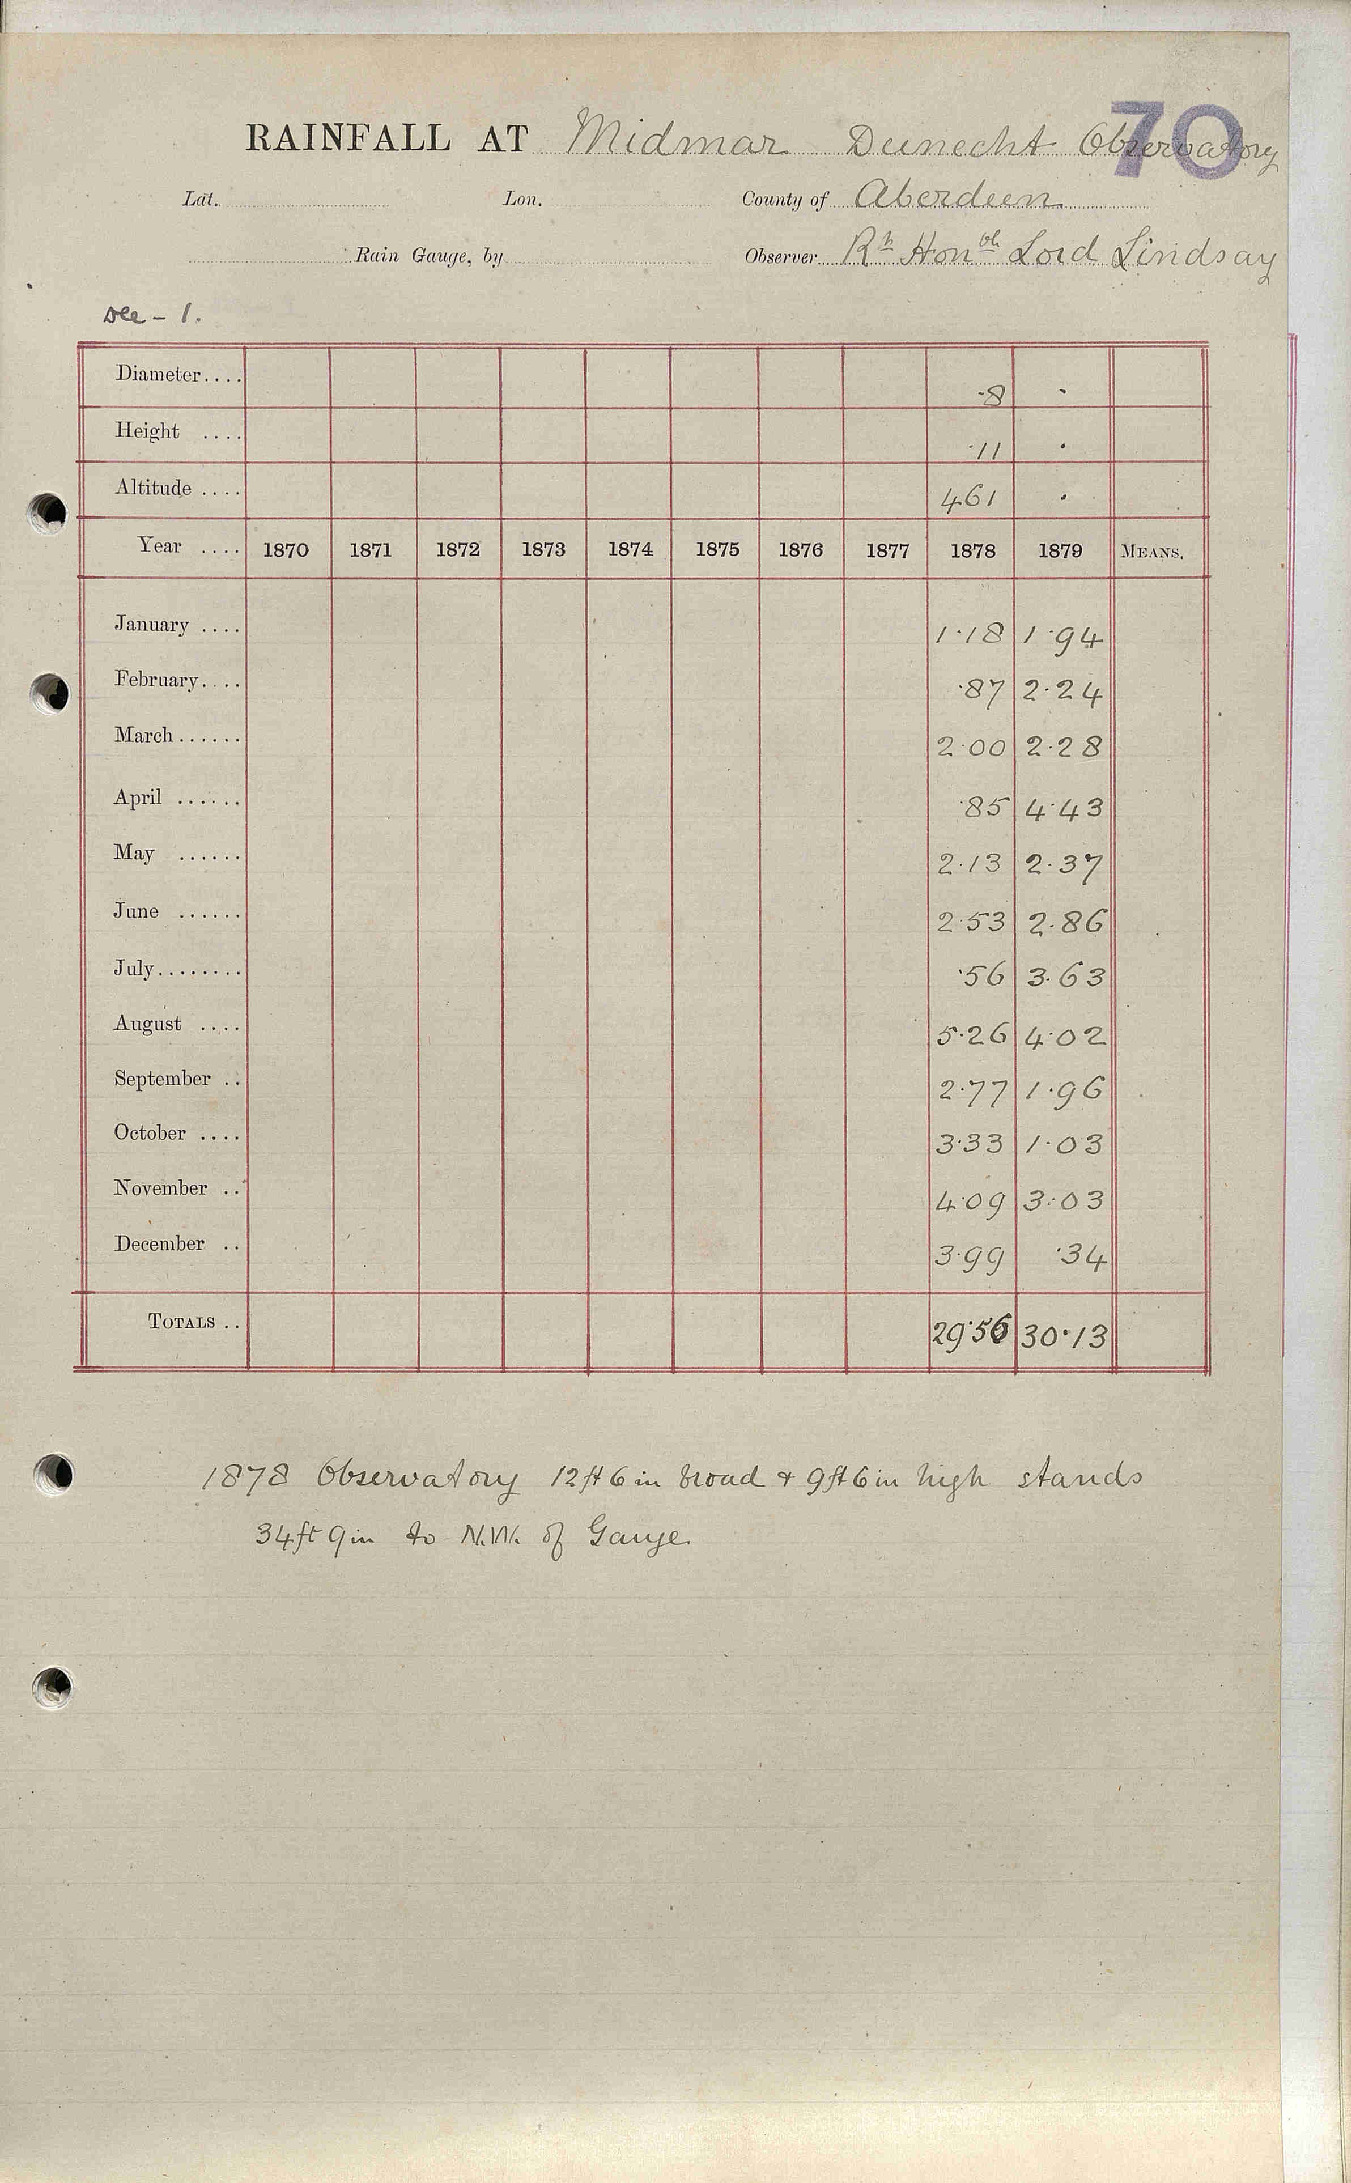 70
RAINFALL AT Midmar Dunecht Observatory
Lat. Lon. County of Aberdeen
Rain Gauge, by Observer Rt Honble Lord Lindsay
Dee - 1.
Diameter.... ·8 ·
Height .... ·11 ·
Altitude .... 461 ·
Year .... 1870 1871 1872 1873 1874 1875 1876 1877 1878 1879 MEANS.
January .... 1·18 1·94
February.... ·87 2·24
March...... 2·00 2·28
April ...... ·85 4·43
May ...... 2·13 2·37
June ...... 2·53 2·86
July........ ·56 3·63
August .... 5·26 4·02
September .. 2·77 1·96
October .... 3·33 1·03
November .. 4·09 3·03
December .. 3·99 ·34
TOTALS .. 29·56 30·13
1878 Observatory 12ft 6in broad & 9ft 6in high stands
34ft 9in to N.W. of Gauge.